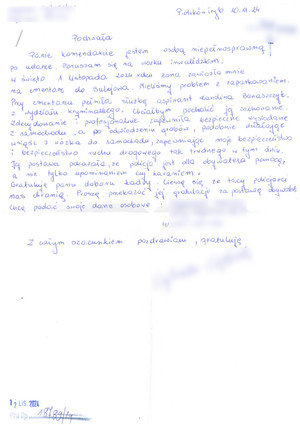 Piotrków Tryb 10.11.24
Pochwała
Panie komendancie jestem osobą niepełnosprawną
po udarze. Poruszam się na wózku inwalidzkim.
W święto 1 listopada 2024 roku żona zawiozła mnie
na cmentarz do Sulejowa. Mieliśmy problem z zaparkowaniem.
Przy cmentarzu pełniła służbę aspirant Karolina Banaszczyk
z wydziału kryminalnego. Chciałbym pochwalić jej zachowanie.
Zdecydowanie i profesjonalnie zapewniła bezpieczne wysiadanie
z samochodu, a po odwiedzeniu grobów, podobnie
wsiąść z wózka do samochodu, zapewniając moje bezpieczeństwo
i bezpieczeństwo ruchu drogowego tak trudnego w tym dniu.
Jej postawa pokazała, że policja jest dla obywatela pomocą,
a nie tylko upominaniem czy karaniem.
Gratuluję panu doboru kadry. Cieszę się że tacy policjanci
nas chronią. Proszę przekazać jej gratulacje za postawę
Chcę podać swoje dane osobowe:
Z całym szacunkiem pozdrawiam, gratuluję
LIS. 2024